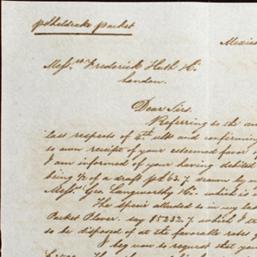 p Sheldrake Packet
Mexico
Mess.rs Frederick Huth &Co
London.
Dear Sirs.
Referring to the an
last respects of 4th ulto and confirming
is own receipt of your esteemed favor
I am informed of your having debited
being ½ of a draft drawn by
Messrs Geo. Longworthy &Co which is
The Specie alluded to in my last
Packet Plover. say $5232.7 which I
to be disposed of at the favorable rates of
I beg now to request that you